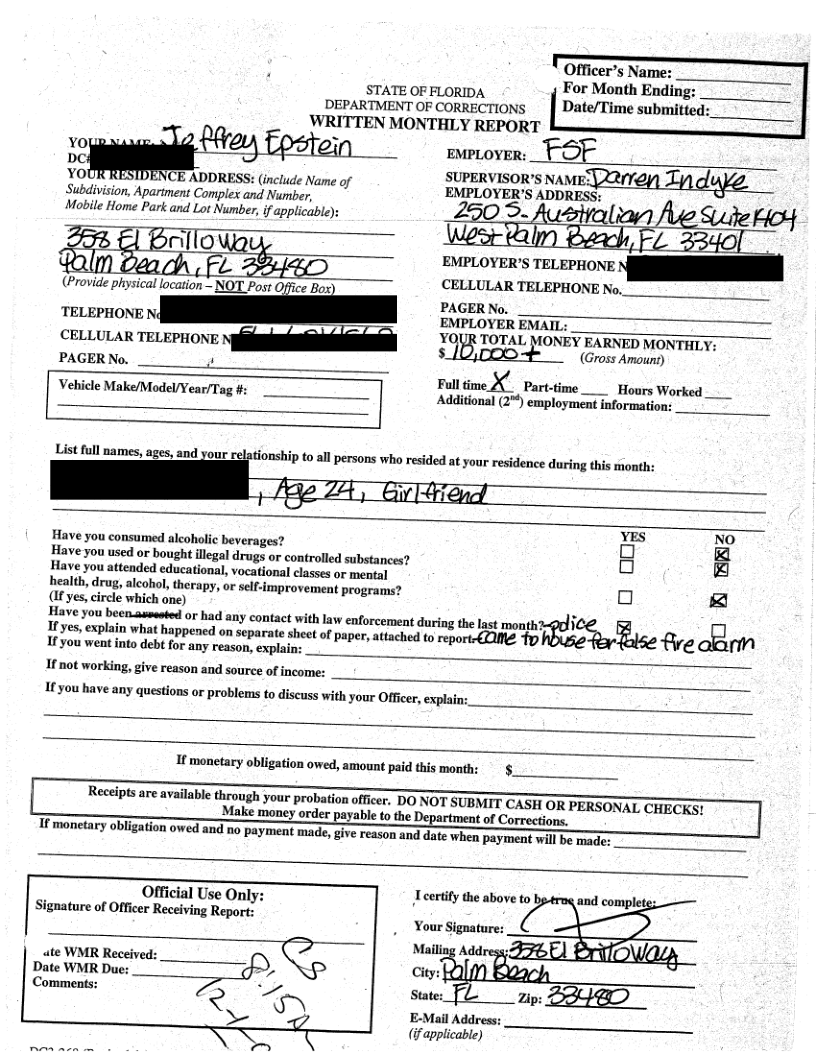 Officer's Name:
For Month Ending:
Date/Time submitted:
STATE OF FLORIDA
DEPARTMENT OF CORRECTIONS
WRITTEN MONTHLY REPORT
YOUR NAME: Jeffrey Epstein
DC#
YOUR RESIDENCE ADDRESS: (include Name of
Subdivision, Apartment Complex and Number,
Mobile Home Park and Lot Number, if applicable):
358 El Brillo Way
Palm Beach, FL 33480
(Provide physical location – NOT Post Office Box)
TELEPHONE No
CELLULAR TELEPHONE N
PAGER No.
Vehicle Make/Model/Year/Tag #:
EMPLOYER: FSF
SUPERVISOR'S NAME: Darren Indyke
EMPLOYER'S ADDRESS:
250 S. Australian Ave Suite 1404
West Palm Beach, FL 33401
EMPLOYER'S TELEPHONE N
CELLULAR TELEPHONE No.
PAGER No.
EMPLOYER EMAIL:
YOUR TOTAL MONEY EARNED MONTHLY:
$ 10,000+ (Gross Amount)
Full time X Part-time Hours Worked
Additional (2nd) employment information:
List full names, ages, and your relationship to all persons who resided at your residence during this month:
, Age 24, Girlfriend
YES NO
Have you consumed alcoholic beverages?
Have you used or bought illegal drugs or controlled substances?
Have you attended educational, vocational classes or mental
health, drug, alcohol, therapy, or self-improvement programs?
(If yes, circle which one)
Have you been arrested or had any contact with law enforcement during the last month? -police
If yes, explain what happened on separate sheet of paper, attached to report. came to house for false fire alarm
If you went into debt for any reason, explain:
If not working, give reason and source of income:
If you have any questions or problems to discuss with your Officer, explain:
If monetary obligation owed, amount paid this month: $
Receipts are available through your probation officer. DO NOT SUBMIT CASH OR PERSONAL CHECKS!
Make money order payable to the Department of Corrections.
If monetary obligation owed and no payment made, give reason and date when payment will be made:
Official Use Only:
Signature of Officer Receiving Report:
ate WMR Received:
Date WMR Due:
Comments:
CS
8:15A
I certify the above to be true and complete:
Your Signature:
Mailing Address: 358 El Brillo Way
City: Palm Beach
State: FL Zip: 33480
E-Mail Address:
(if applicable)